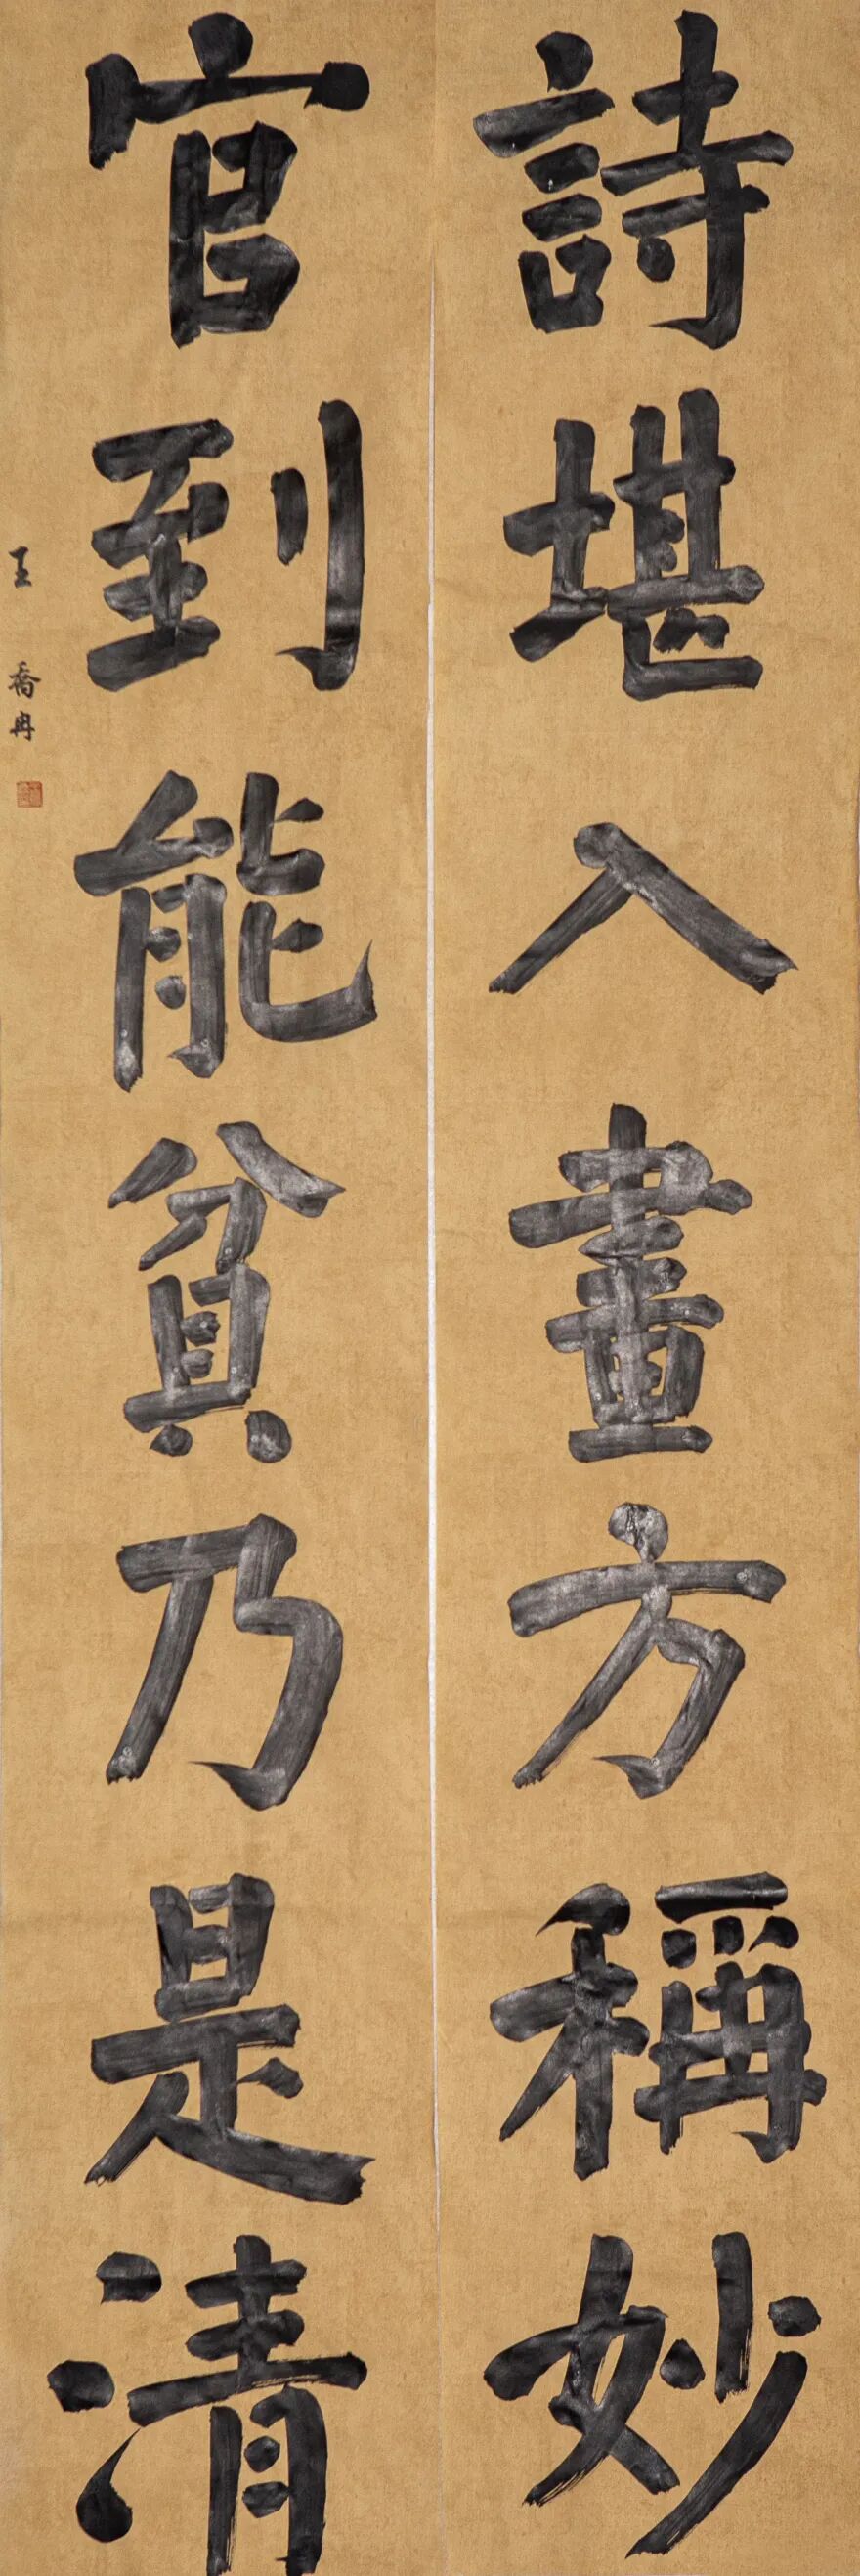 詩堪入畫方稱妙
官到能貧乃是清
王喬冉